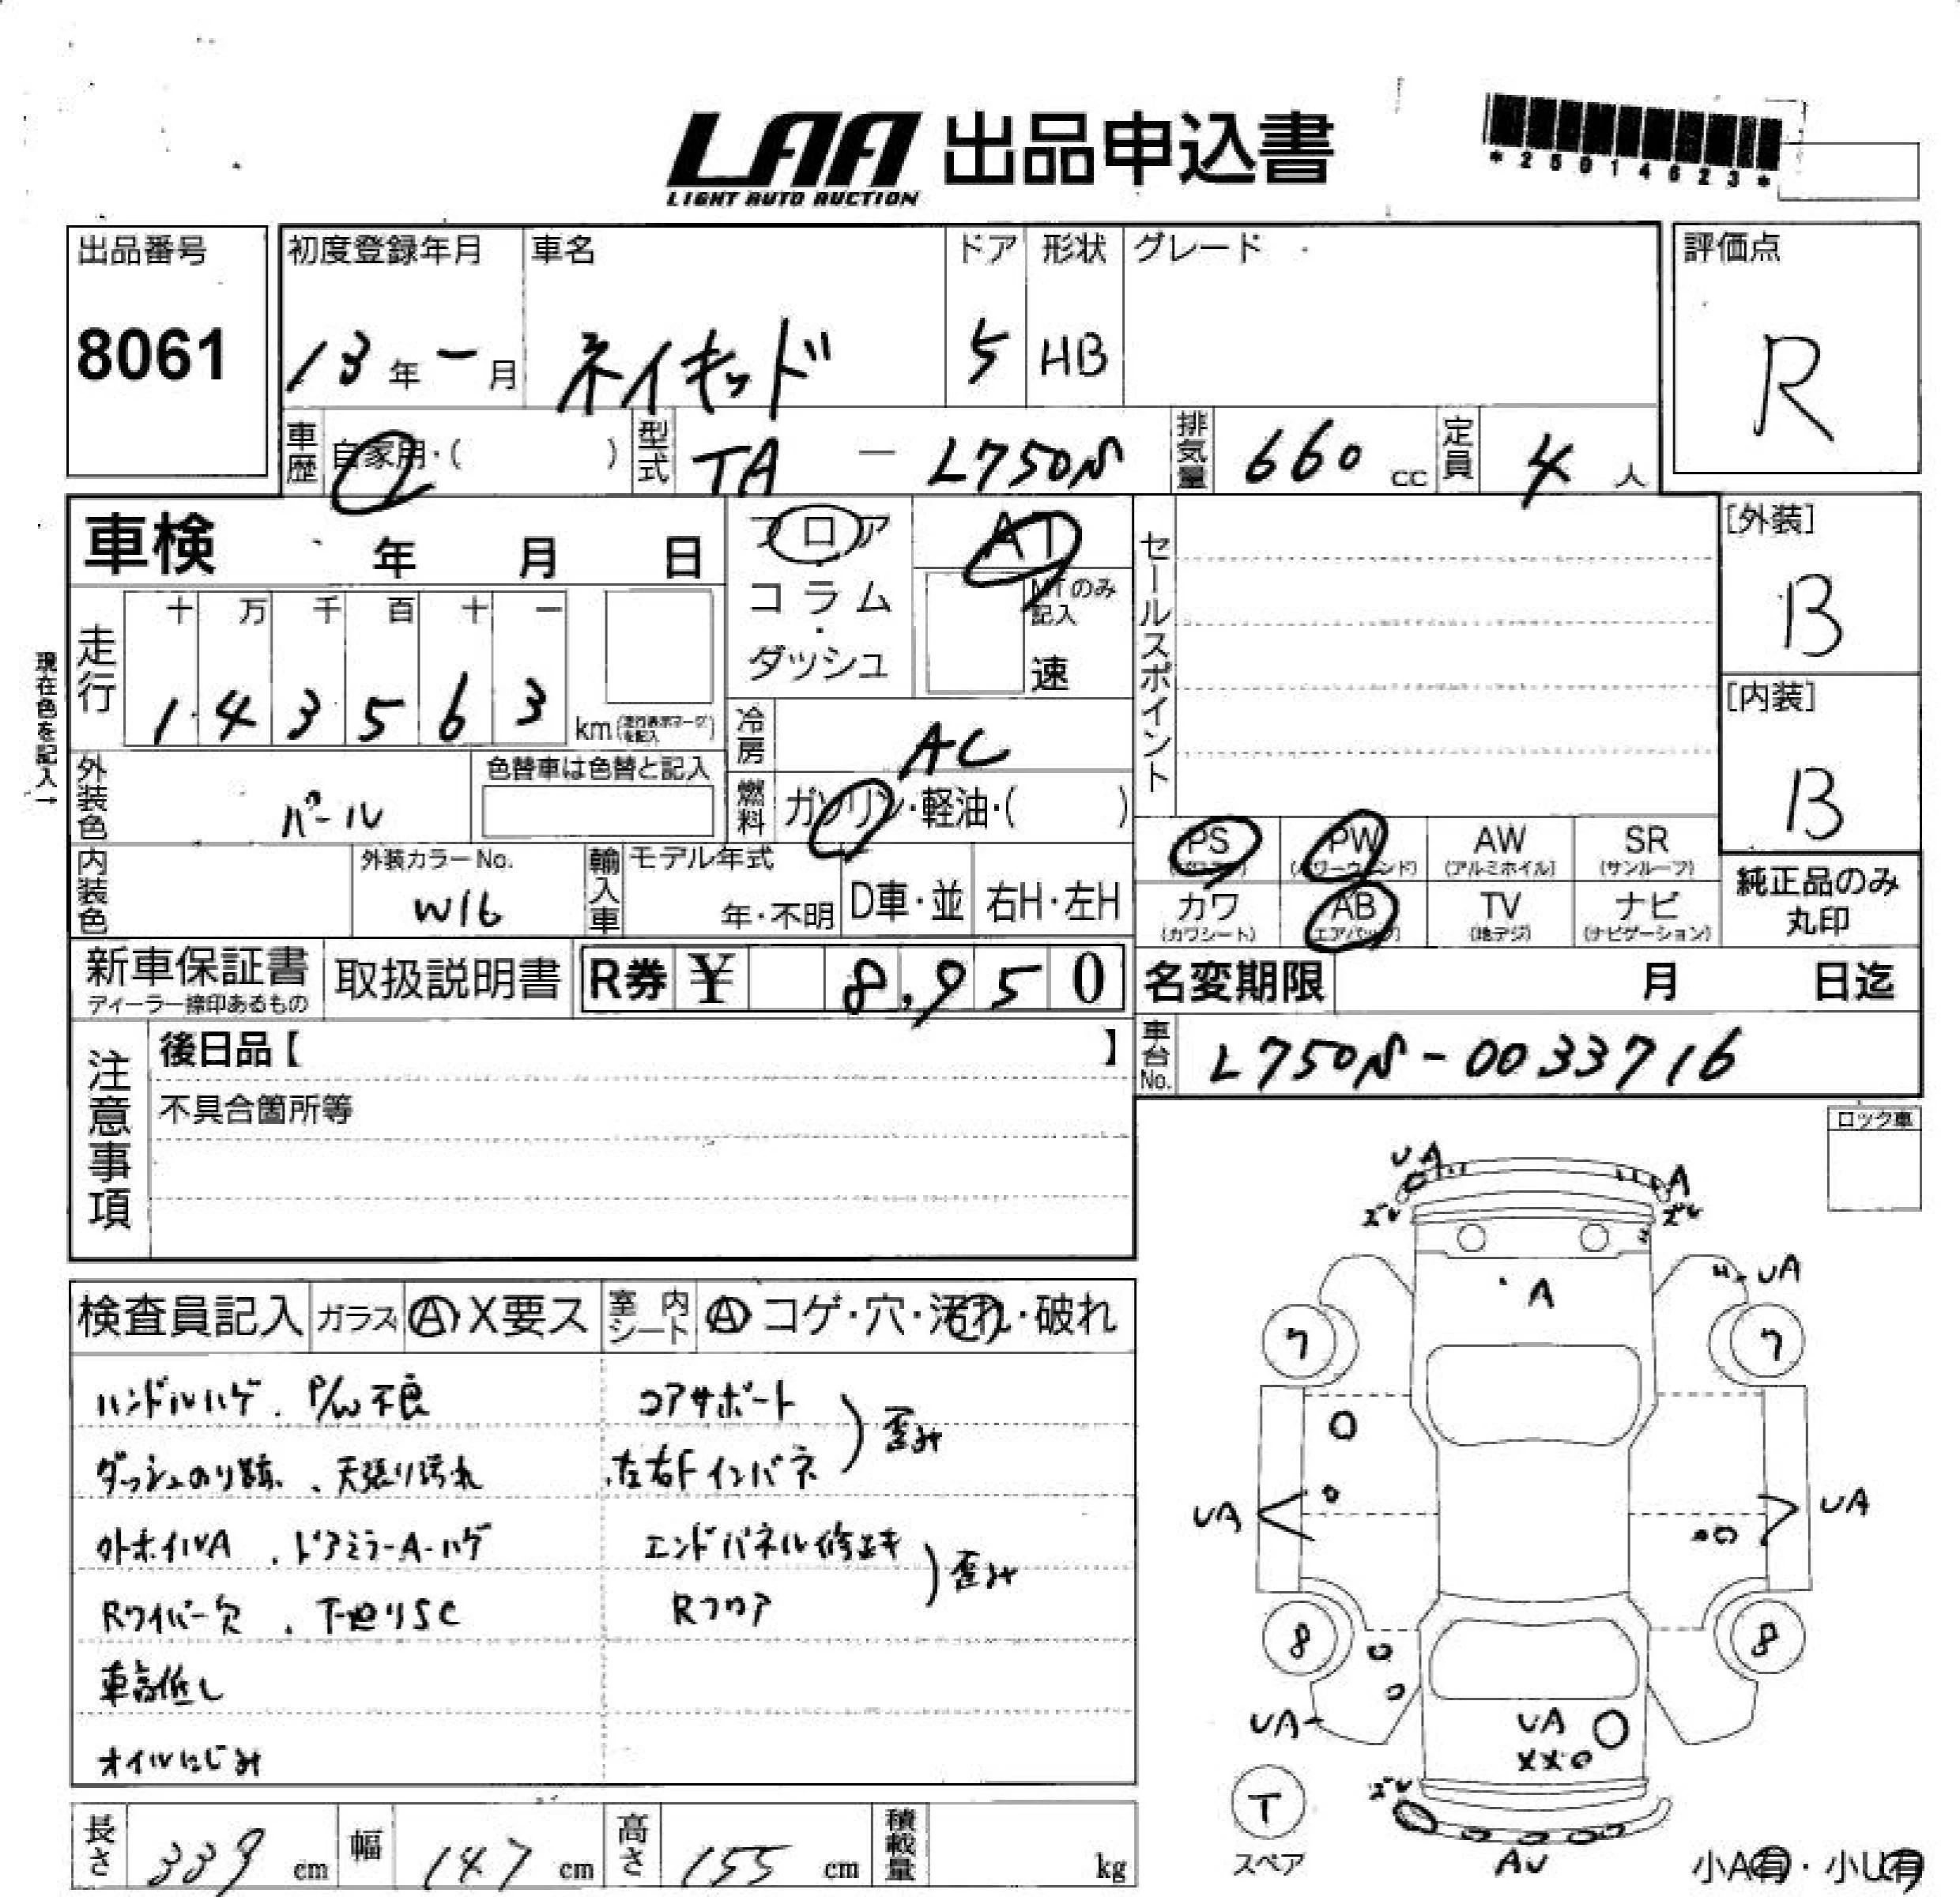 LAA 出品申込書
LIGHT AUTO AUCTION
*25014623*
出品番号
8061
初度登録年月
13年 - 月
車名
ネイキッド
ドア
5
形状
HB
グレード
評価点
R
車歴
自家用・( )
型式
TA - L750S
排気量
660 cc
定員
4 人
車検 年 月 日
フロア
コラム
・
ダッシュ
AT
MTのみ記入
速
セールスポイント
[外装]
B
[内装]
B
現在色を記入→
走行
十 万 千 百 十 一
1 4 3 5 6 3 km(走行表示マークを記入)
冷房
AC
外装色
パール
色替車は色替と記入
燃料
ガソリン・軽油・( )
PS
PW
(パワーウィンド)
AW
(アルミホイル)
SR
(サンルーフ)
内装色
外装カラーNo.
W16
輸入車
モデル年式
年・不明
D車・並
右H・左H
カワ
(カワシート)
AB
(エアバック)
TV
(地デジ)
ナビ
(ナビゲーション)
純正品のみ
丸印
新車保証書
ディーラー捺印あるもの
取扱説明書
R券 ¥ 8,950
名変期限 月 日迄
車台No.
L750S-0033716
注意事項
後日品【 】
不具合箇所等
ロック車
検査員記入
ガラス
A X要ス
室内シート
A コゲ・穴・汚れ・破れ
ハンドルハゲ . P/W不良
コアサポート
歪み
ダッシュのり跡 . 天張り汚れ
左右Fインパネ
外ホイルA . ドアミラーA・ハゲ
エンドパネル修正キ
歪み
Rワイパー欠 . 下廻りSC
Rフロア
車高低し
オイルにじみ
長さ
339 cm
幅
147 cm
高さ
155 cm
積載量
kg
UA
A
ズレ
ズレ
A
UA
7
7
UA
UA
8
8
UA
UA
XXO
ズレ
T
スペア
AU
小A有・小U有